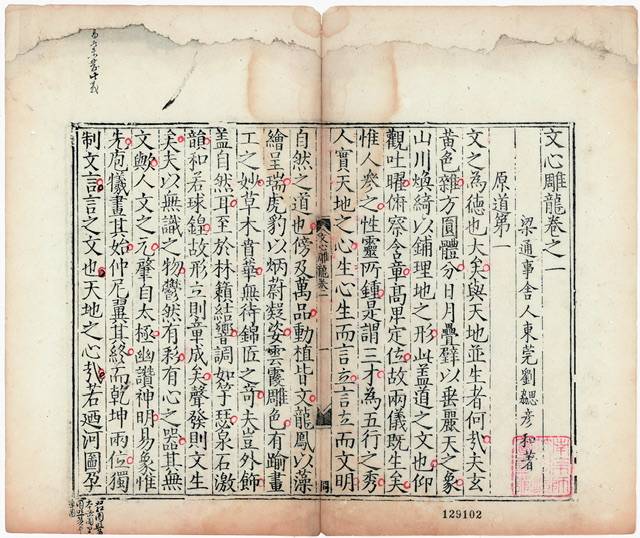 文心雕龍卷之一
梁通事舍人東莞劉勰彦和著
原道第一
文之為德也大矣與天地並生者何㢤夫玄
黄色雜方圓體分日月疊璧以垂麗天之象
山川煥綺以鋪理地之形此盖道之文也仰
觀吐曜俯察含章高卑定位故兩儀既生矣
惟人參之性靈所鍾是謂三才為五行之秀
人實天地之心生心生而言立言立而文明
文心雕龍卷一
一
自然之道也傍及萬品動植皆文龍鳳以藻
繪呈瑞虎豹以炳蔚凝姿雲霞雕色有踰畫
工之妙草木賁華無待錦匠之竒夫豈外飾
盖自然耳至於林籟結響調如竽瑟泉石激
韻和若球鍠故形立則章成矣聲發則文生
矣夫以無識之物鬱然有彩有心之器其無
文歟人文之元肇自太極幽讚神明易象惟
先庖犧畫其始仲尼翼其終而乾坤兩位獨
制文言言之文也天地之心㢤若廼河圖孕
129102